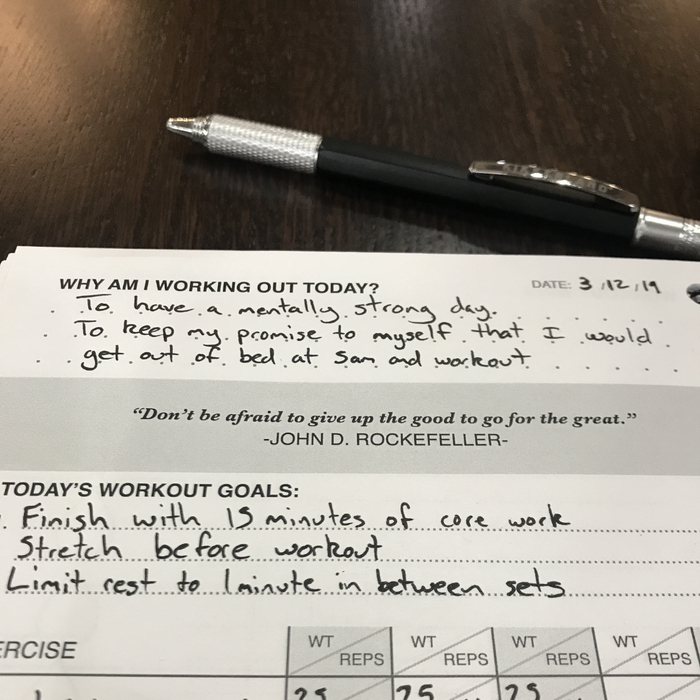 WHY AM I WORKING OUT TODAY?
DATE: 3/12/19
To have a mentally strong day.
To keep my promise to myself that I would
get out of bed at 5am and workout
“Don't be afraid to give up the good to go for the great.”
-JOHN D. ROCKEFELLER-
TODAY'S WORKOUT GOALS:
Finish with 15 minutes of core work
Stretch before workout
Limit rest to 1 minute in between sets
ERCISE WT REPS WT REPS WT REPS WT REPS
25 25 25